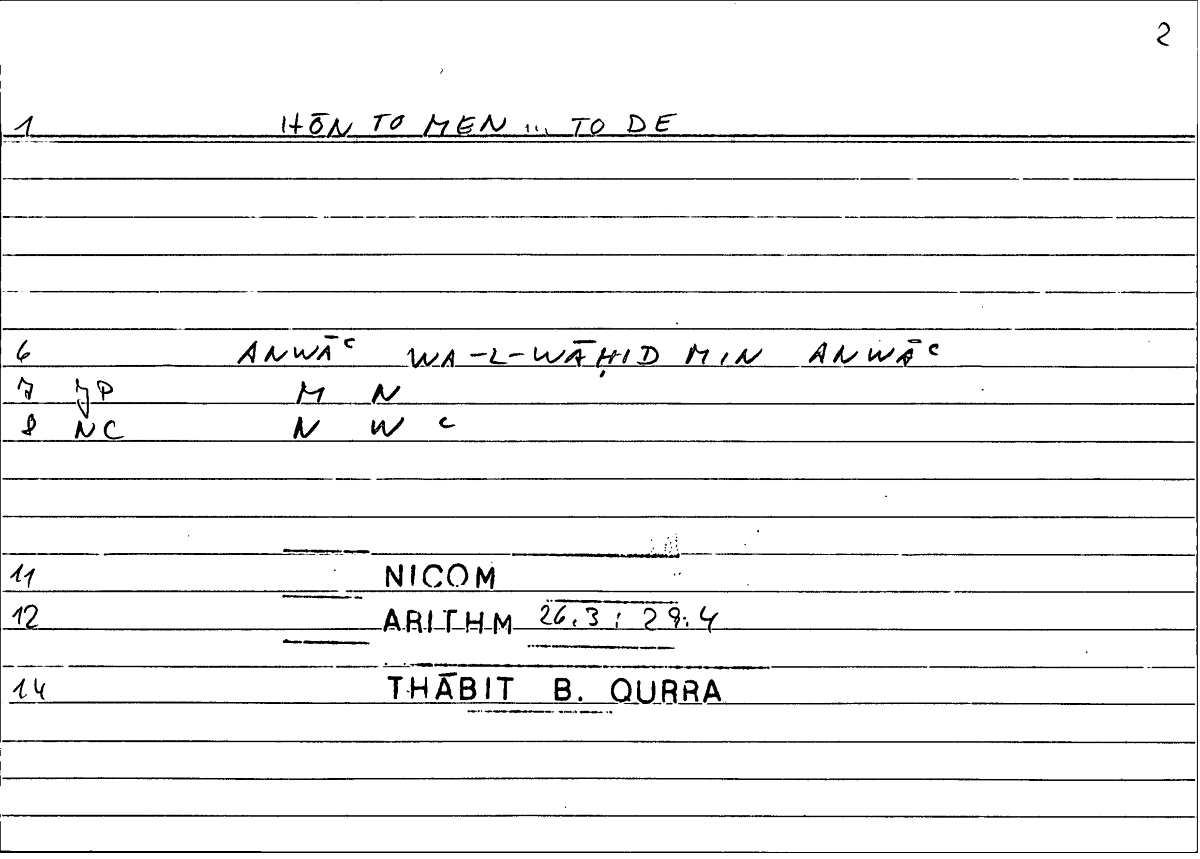 2
1 HŌN TO MEN ... TO DE
6 ANWĀᶜ WA-L-WĀḤID MIN ANWĀᶜ
7 JP M N
8 NC N W ᶜ
11 NICOM
12 ARITHM 26.3 ; 29.4
14 THĀBIT B. QURRA